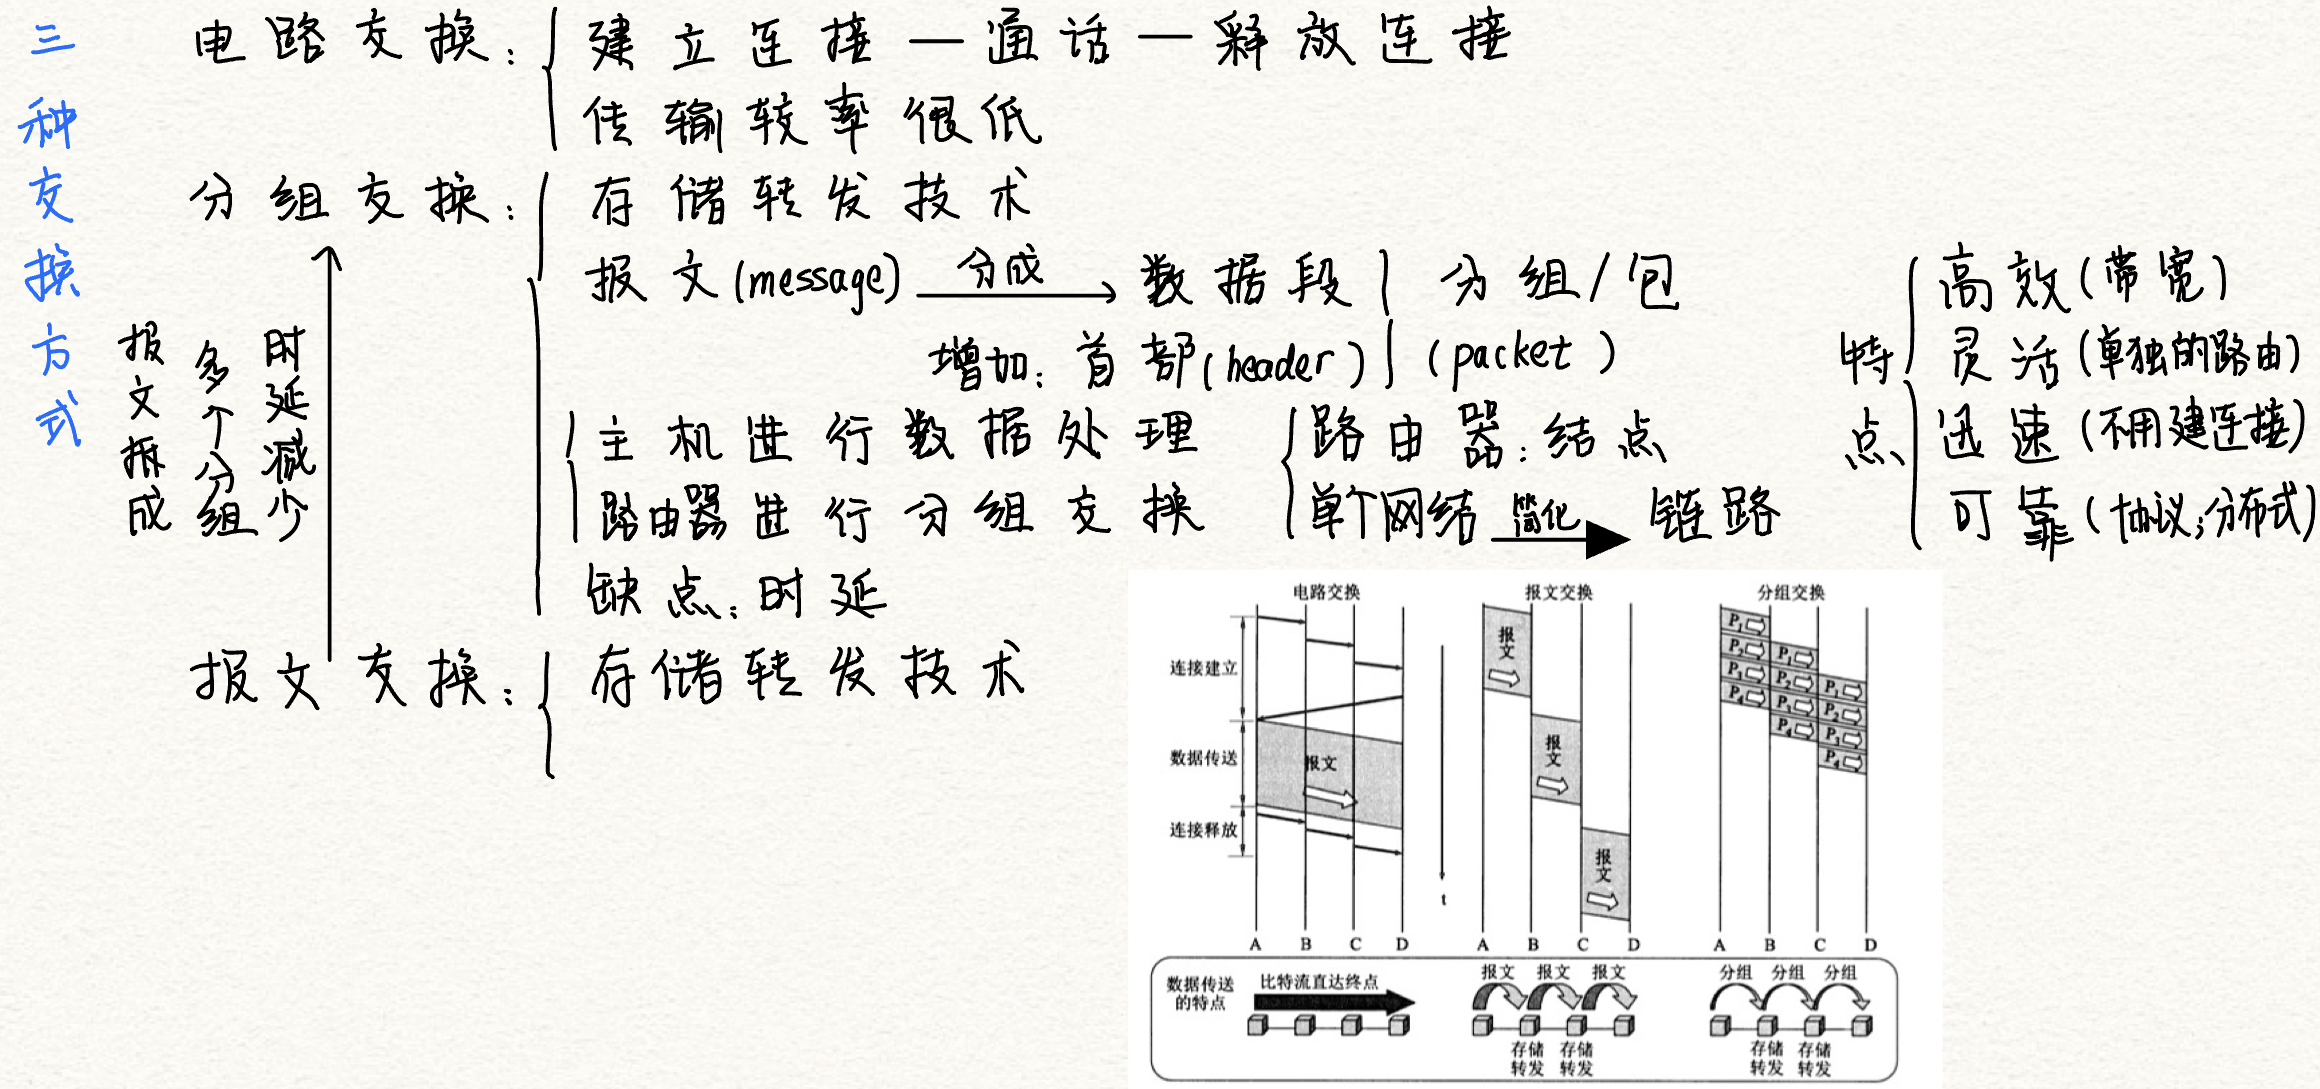 三种交换方式
电路交换：建立连接—通话—释放连接
传输较率很低
分组交换：存储转发技术
报文(message) 分成 数据段 分组/包
增加：首部(header) (packet)
主机进行数据处理 路由器：结点
路由器进行分组交换 单个网络 简化 链路
缺点：时延
特点
高效(带宽)
灵活(单独的路由)
迅速(不用建连接)
可靠(协议；分布式)
报文拆成
多个分组
时延减少
报文交换：存储转发技术
电路交换 报文交换 分组交换
连接建立
数据传送
连接释放
报文
报文
报文
报文
t
P1
P2 P1
P3 P2 P1
P4 P3 P2
P4 P3
P4
A B C D A B C D A B C D
数据传送的特点
比特流直达终点
报文 报文 报文
分组 分组 分组
存储转发 存储转发
存储转发 存储转发